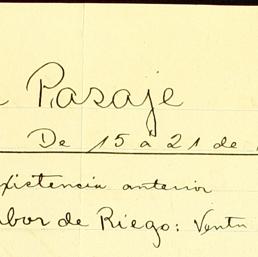 Pasaje
De 15 á 21 de
existencia anterior
labor de Riego: Ventu